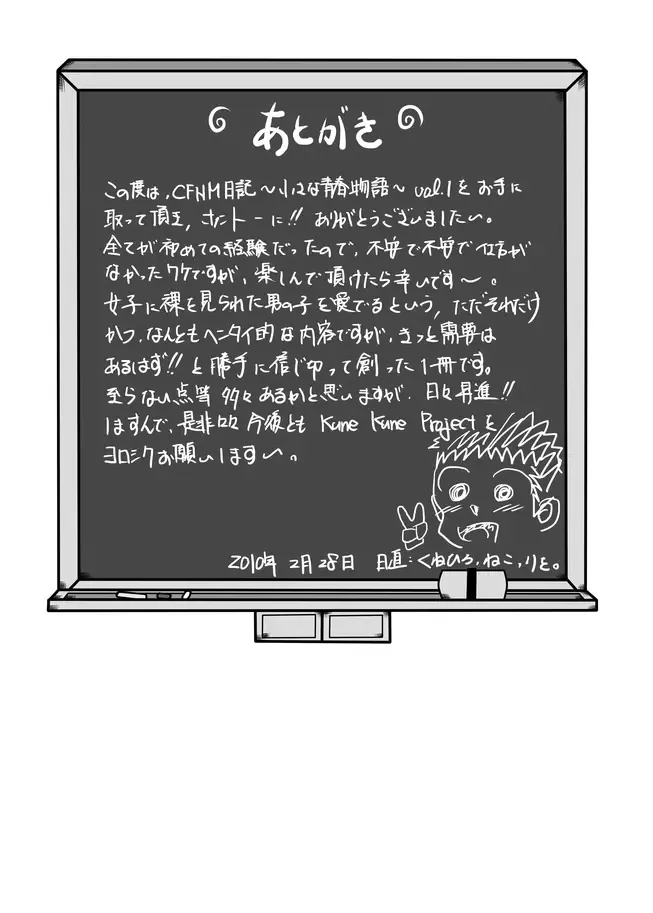 あとがき
この度は、CFNM日記～小さな青春物語～ val.1 を お手に
取って頂き、まことーに!! ありがとうございましたー。
全てが初めての経験だったので、不安で不安で仕方が
なかったワケですが、楽しんで頂けたら幸いです～。
女子に裸を見られた男の子を愛でるという、ただそれだけ
かつ、なんともヘンタイ的な内容ですが、きっと需要は
あるはず!! と勝手に信じ切って創った1冊です。
至らない点等 多々あるかと思いますが、日々昇進!!
しますんで、是非々々 今後とも Kune Kune Project を
ヨロシクお願いします～。
2010年 2月 28日 日直:くねひろ、ねこ、りと。